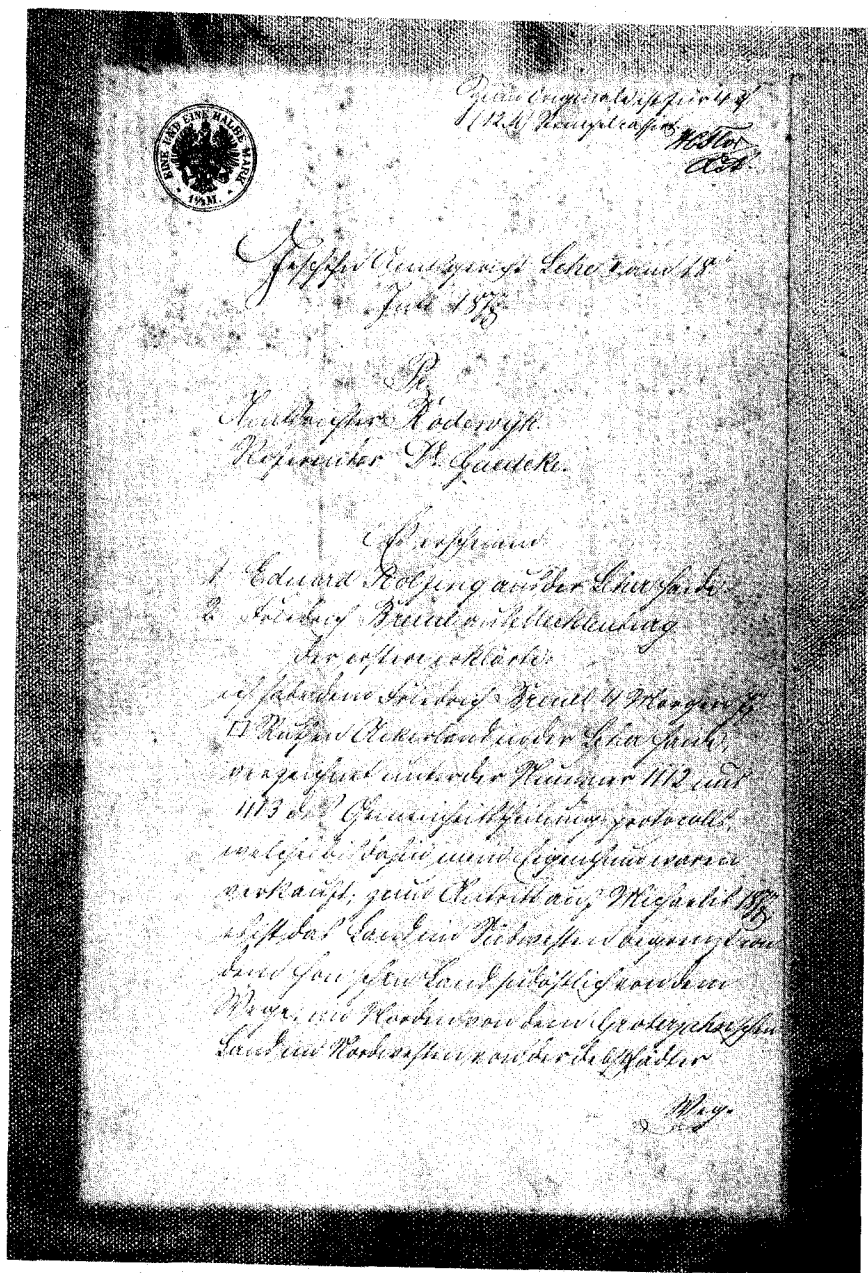 EINE UND EINE HALBE MARK
1½ M.
Zum Original ist für 4
Geschehen Amtsgericht Lehe am 18
Juli 187
Amtsrichter Rodewyk.
Referendar Dr. Gaedeke.
Es erschienen
1 Eduard Rolfing aus der Leher Haide
2 Friedrich aus Mecklenburg
der erstere erklärte:
ich habe dem Friedrich 4 Morgen
□ Ruthen Ackerland in der Leher Haide,
verzeichnet unter der Nummer 1112 und
1113 des Gemeinheitstheilungsprotocolls,
welche bis dahin mein Eigenthum waren
verkauft, zum Antritt auf Michaelis 187
es ist das Land im Südwesten begrenzt von
dem Land südöstlich von dem
Wege, im Norden von dem Groterjahnschen
Land im Nordwesten von der Debstädter
Weg.